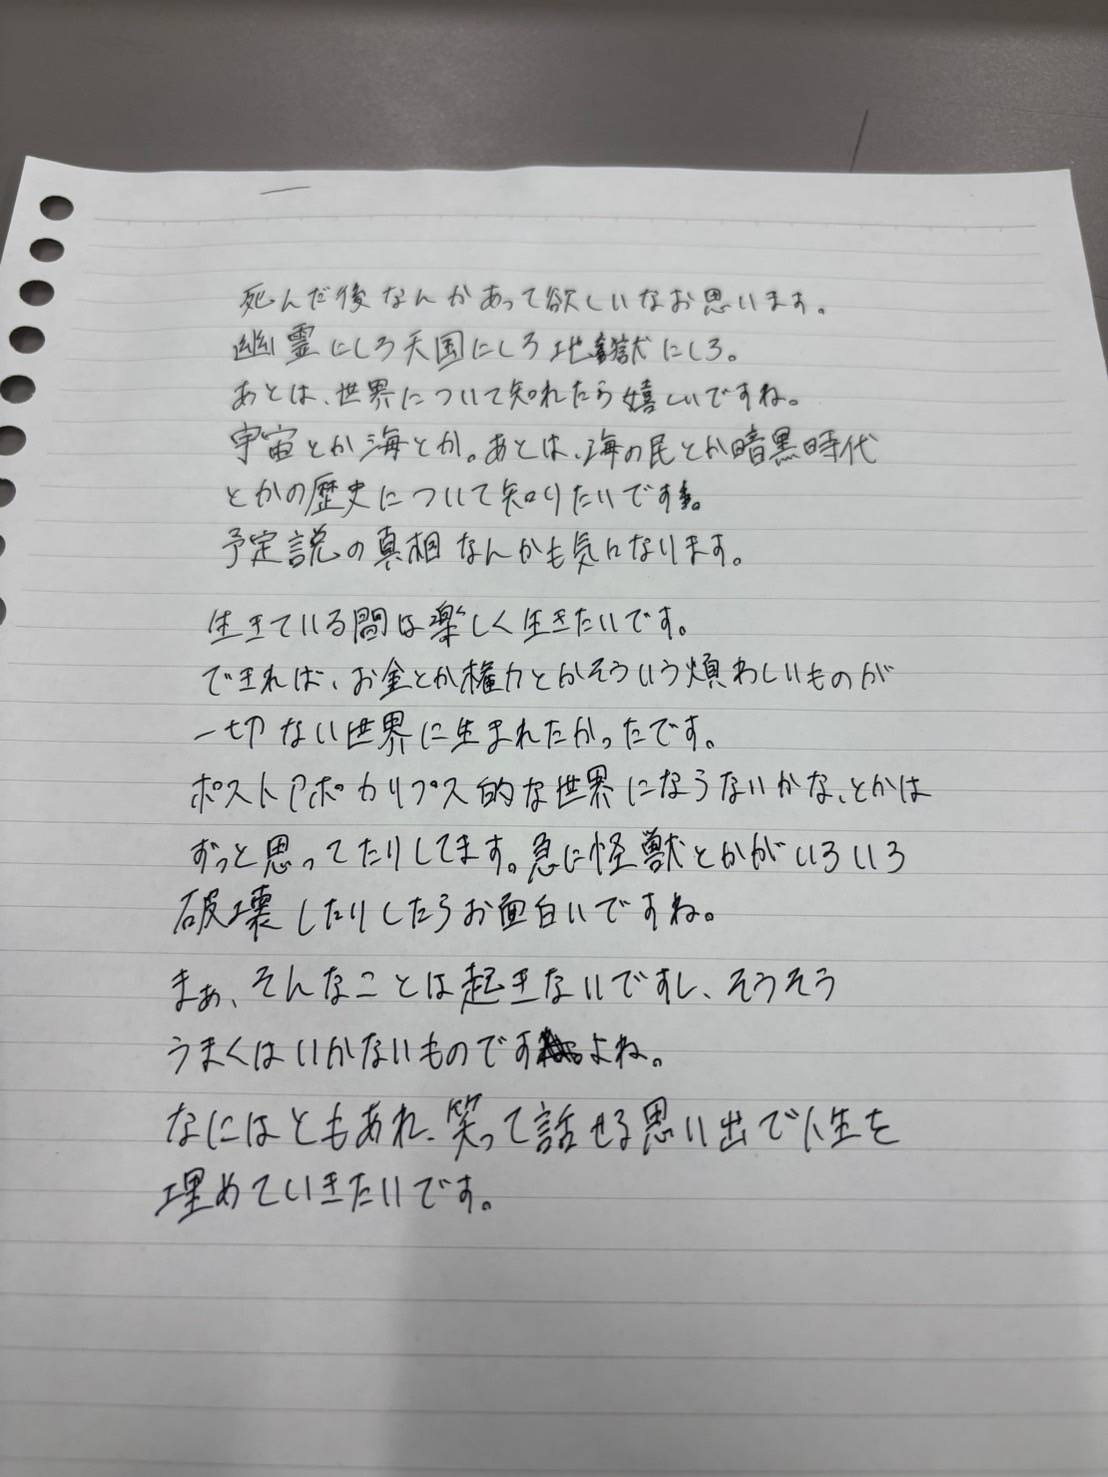 死んだ後なんかあって欲しいなお思います。
幽霊にしろ天国にしろ地獄にしろ。
あとは、世界について知れたら嬉しいですね。
宇宙とか海とか。あとは、海の民とか暗黒時代
とかの歴史について知りたいです。
予定説の真相なんかも気になります。
生きている間は楽しく生きたいです。
できれば、お金とか権力とかそういう煩わしいものが
一切ない世界に生まれたかったです。
ポストアポカリプス的な世界にならないかな、とかは
ずっと思ってたりしてます。急に怪獣とかがいろいろ
破壊したりしたらお面白いですね。
まぁ、そんなことは起きないですし、そうそう
うまくはいかないものですよね。
なにはともあれ、笑って話せる思い出で人生を
埋めていきたいです。